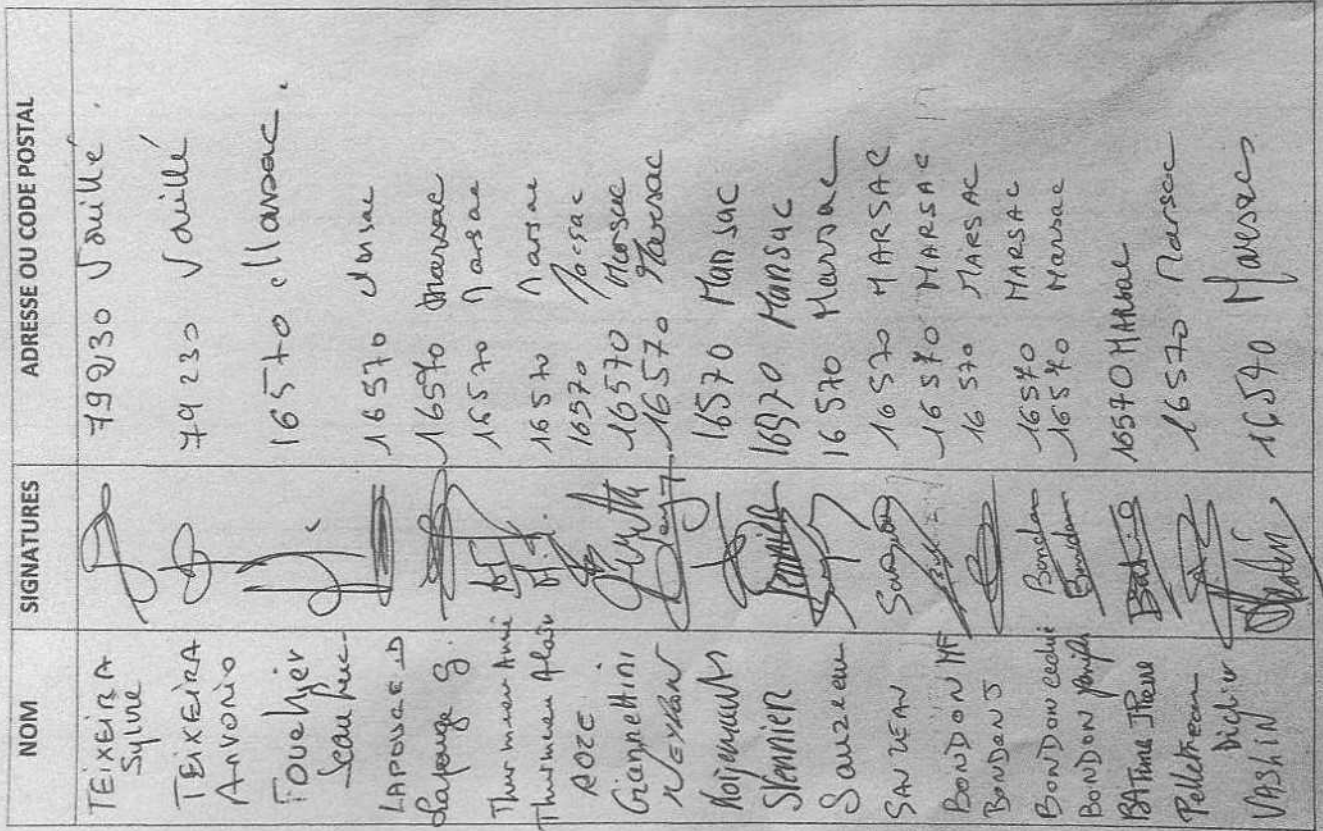 NOM SIGNATURES ADRESSE OU CODE POSTAL
TEIXEIRA Sylvie 79230 Vouillé.
TEIXEIRA Antonio 79230 Vouillé
Fouchier Jean Luc 16570 Marsac.
LAPOUGE D 16570 Marsac
Lapouge G. 16570 Marsac
Thurmeau Annie 16570 Marsac
Thurmeau Alain 16570 Marsac
ROZE 16570 Marsac
Giannettini 16570 Marsac
NEYRON 16570 Marsac
16570 Marsac
16570 Marsac
Sauzeau 16570 Marsac
SAUZEAU 16570 MARSAC
BONDON MF 16570 MARSAC
BONDON J 16570 MARSAC
BONDON Bondon 16570 MARSAC
BONDON Bondon 16570 Marsac
16570 MARSAC
Pelletreau Didier 16570 Marsac
VASLIN Vaslin 16570 Marsac